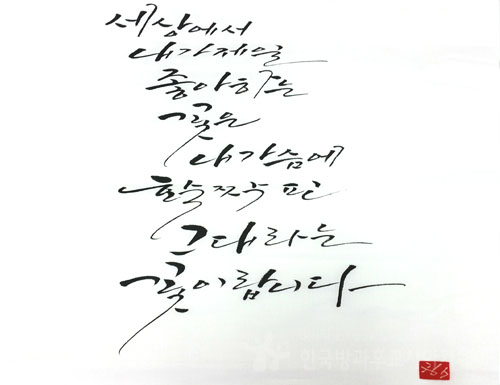 세상에서
내가 제일
좋아하는
꽃은
내 가슴에
활짝 핀
그대라는
꽃이랍니다